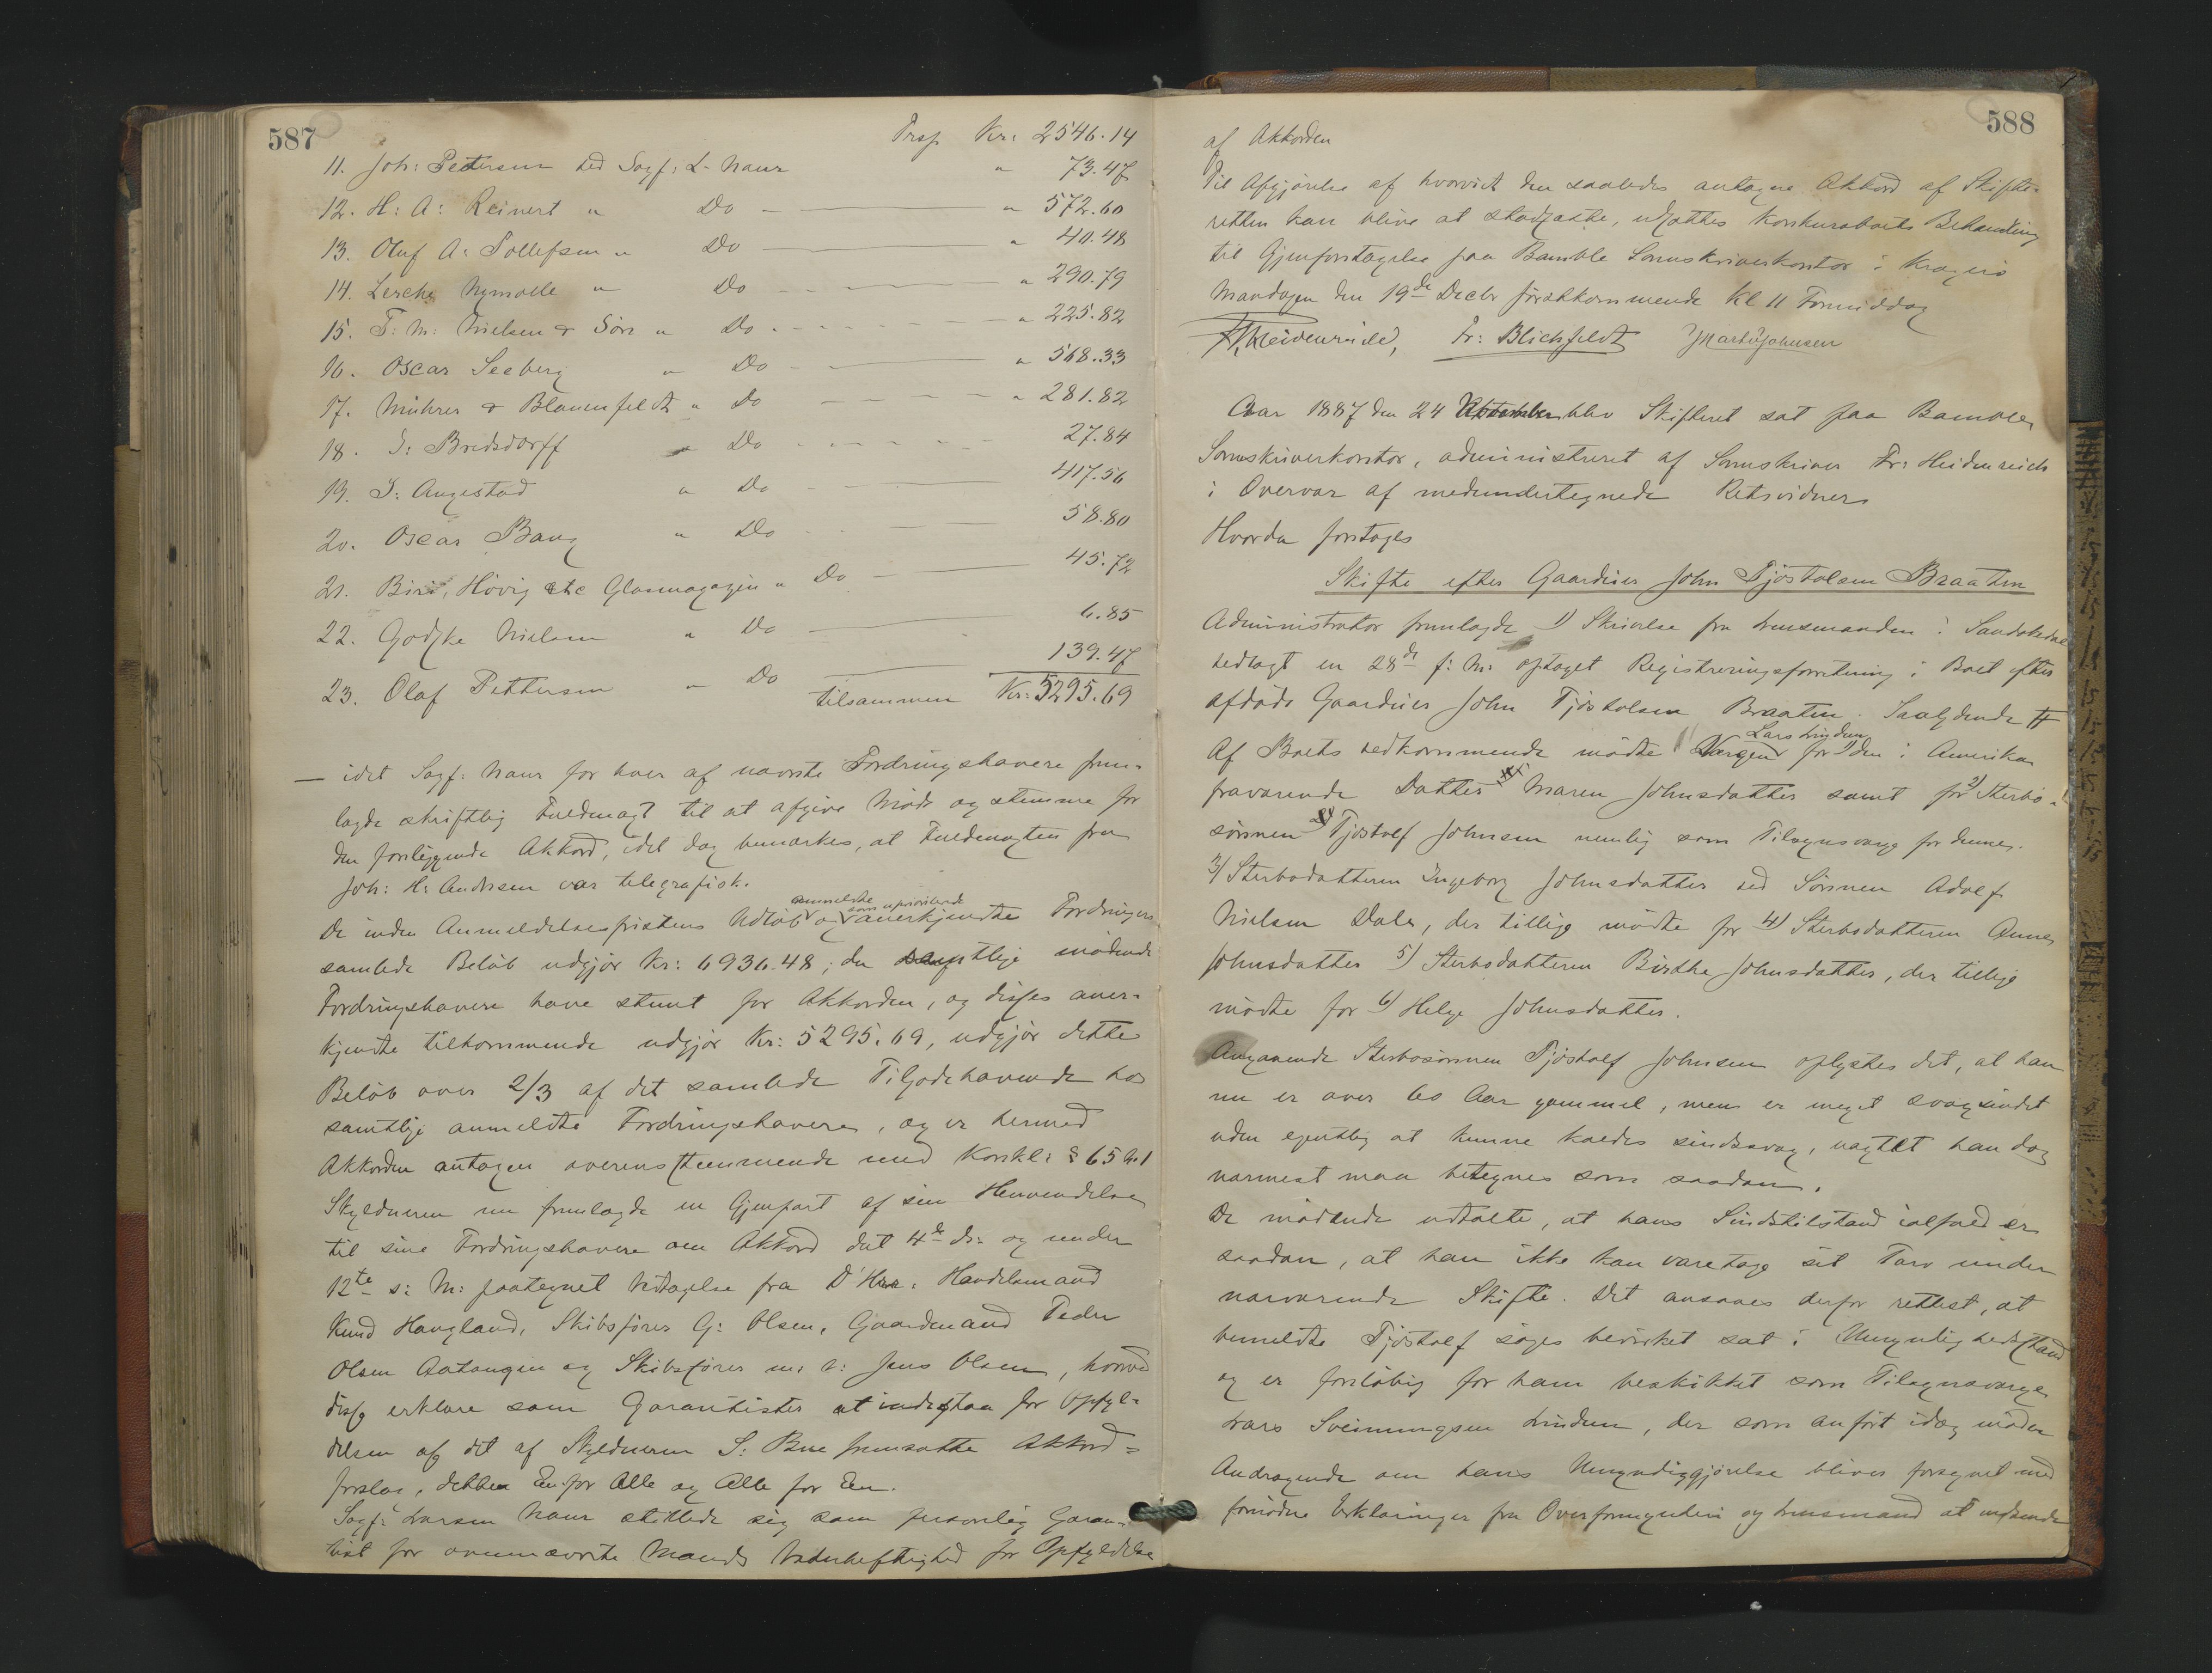 587
Trsp. Kr: 2546.14
11. Joh: Pettersen ved Sagf: L. Naur " 73.47
12. H: A: Reinert " Do — " 572.60
13. Oluf A: Tollefsen " Do — " 40.48
14. Lerche Nymoelle " Do — " 290.79
15. T: M: Nielsen & Sön " Do — " 225.82
16. Oscar Seeberg " Do — " 568.33
17. Mührer & Blauenfeldt " Do — " 281.82
18. J: Bredsdorff " Do — 27.84
19. J: Augestad " Do — 417.56
20. Oscar Bang " Do — 58.80
21. Biri, Hövig etc Glasmagazin " Do — 45.72
22. Godske Nielsen " Do — 6.85
23. Olaf Pettersen " Do — 139.47
tilsammen Kr: 5295.69
— idet Sagf: Naur for hver af nævnte Fordringshavere frem-
lagde skriftlig Fuldmagt til at afgive Møde og stemme for
den foreliggende Akkord, idet dog bemærkes, at Fuldmagten fra
Joh: H: Andresen var telegrafisk.
anmeldte som uprioriterede
De inden Anmeldelsesfristens Udløb og anerkjendte Fordringers
samlede Beløb udgjør Kr: 6936.48; da samtlige mødende
Fordringshavere have stemt for Akkorden, og disses aner-
kjendte tilkommende udgjør Kr: 5295.69, udgjør dette
Beløb over 2/3 af det samlede Tilgodehavende hos
samtlige anmeldte Fordringshavere, og er hermed
Akkorden antagen overensstemmende med Konkl: § 65 N.1
Skyldneren nu fremlagde en Gjenpart af sin Henvendelse
til sine Fordringshavere om Akkord dat 4de ds: og under
12te s: M: paategnet Vedtagelse fra D'Hrr: Handelsmand
Knud Haugland, Skibsfører G: Olsen, Gaardmand Peder
Olsen Aatangen og Skibsfører Jens Olsen, hvorved
disse erklære som Garantister at indestaa for Opfyl-
delsen af det af Skyldneren S: Bue fremsatte Akkord-
forslag, Een for Alle og Alle for Een.
Sagf: Larsen Naur stillede sig som personlig Garan-
tist for ovennævnte Mænds Vederheftighed for Opfyldelse
588
af Akkorden
Til Afgjørelse af hvorvidt den saaledes antagne Akkord af Skifte-
retten kan blive at stadfæste, udsættes Konkursboets Behandling
til Gjenforetagelse paa Bamble Sorenskriverkontor i Kragerø
Mandagen den 19de Decbr førstkommende Kl 11 Formiddag
Fr: Heidenreich, Fr: Blichfeldt Martin Johnsen
Aar 1887 den 24 blev Skifteret sat paa Bamble
Sorenskriverkontor, administreret af Sorenskriver Fr: Heidenreich
i Overvær af medundertegnede Retsvidner
Hvorda foretoges
Skifte efter Gaardeier John Tjøstolsen Braaten
Administrator fremlagde 1) Skrivelse fra Lensmanden i Sandøkedal
vedlagt en 28de f: M: optaget Registreringsforretning i Boet efter
afdøde Gaardeier John Tjøstolsen Braaten. Saalydende #
Lars Lindum
Af Boets Vedkommende mødte Værgen for 1) den i Amerika
fraværende Datter Maren Johnsdatter samt for 2) Sterbo-
sønnen Tjøstolf Johnsen nemlig som Tilsynsværge for denne.
3) Sterbodatteren Ingeborg Johnsdatter ved Sønnen Adolf
Nielsen Dale, der tillige mødte for 4) Sterbodatteren Anne
Johnsdatter 5) Sterbodatteren Birthe Johnsdatter, der tillige
mødte for 6) Helge Johnsdatter.
Angaaende Sterbosønnen Tjøstolf Johnsen oplystes det, at han
nu er over 60 Aar gammel, men er meget svagsindet
uden egentlig at kunne kaldes sindssvag, uagtet han dog
nærmest maa betegnes som saadan.
De mødende udtalte, at hans Sindstilstand ialfald er
saadan, at han ikke kan varetage sit Tarv under
nærværende Skifte. Det ansaaes derfor rettest, at
bemeldte Tjøstolf søges bevirket sat i Umyndighedsstand
og er foreløbig for ham beskikket som Tilsynsværge
Lars Sveinungsen Lindum, der som anført idag møder
Andragende om hans Umyndiggjørelse bliver forsynet med
fornødne Erklæringer fra Overformynderi og Lensmand at indsende